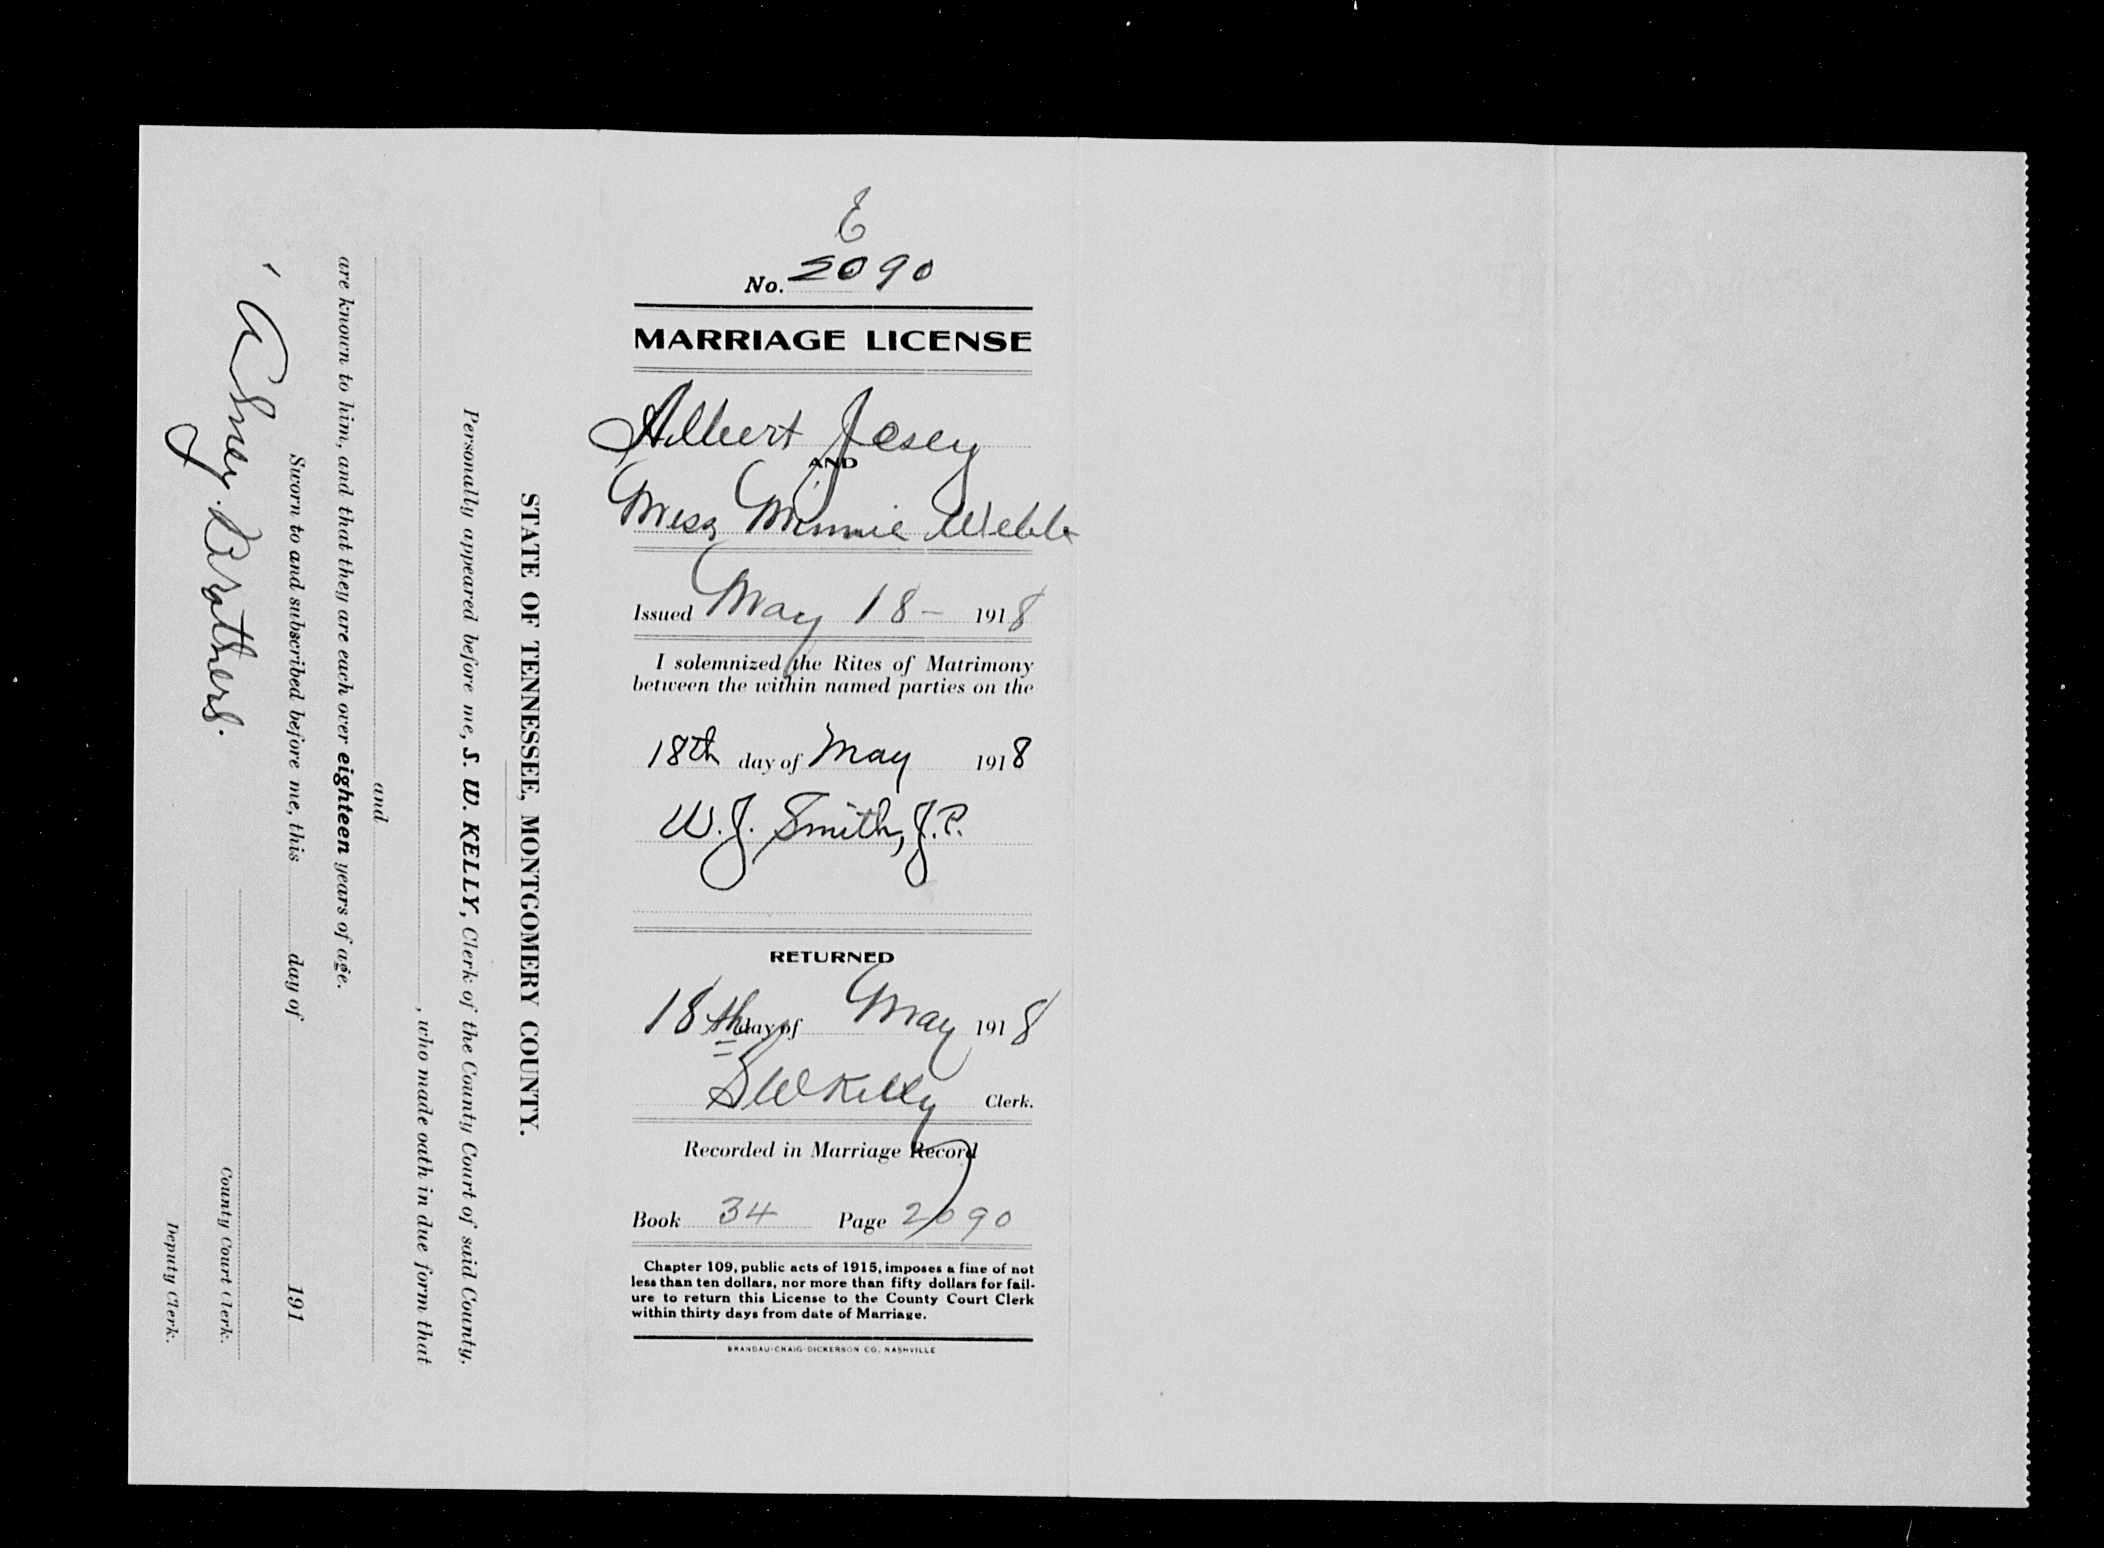 E
No. 2090
MARRIAGE LICENSE
Albert Jesey
AND
Miss Minnie Webb
Issued May 18 - 1918
I solemnized the Rites of Matrimony
between the within named parties on the
18th day of May 1918
W. J. Smith, J.P.
RETURNED
18th day of May 1918
S W Kelly Clerk.
Recorded in Marriage Record
Book 34 Page 2090
Chapter 109, public acts of 1915, imposes a fine of not
less than ten dollars, nor more than fifty dollars for fail-
ure to return this License to the County Court Clerk
within thirty days from date of Marriage.
BRANDAU-CRAIG-DICKERSON CO. NASHVILLE
STATE OF TENNESSEE, MONTGOMERY COUNTY.
Personally appeared before me, S. W. KELLY, Clerk of the County Court of said County,
, who made oath in due form that
and
are known to him, and that they are each over eighteen years of age.
Sworn to and subscribed before me, this day of 191
County Court Clerk.
Deputy Clerk.
Brothers.